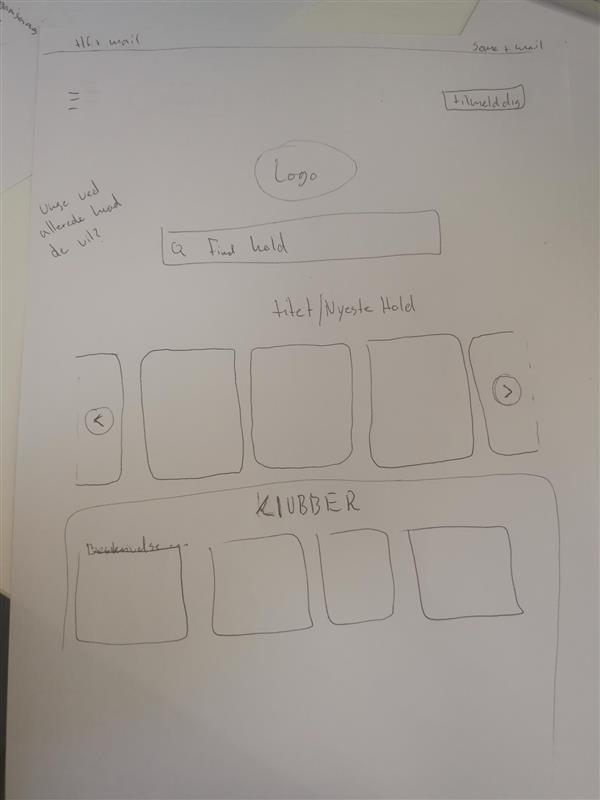 tlf + mail
Some + mail
tilmeld dig
Logo
unge ved
allerede hvad
de vil?
Find hold
titel/Nyeste Hold
<
>
KLUBBER